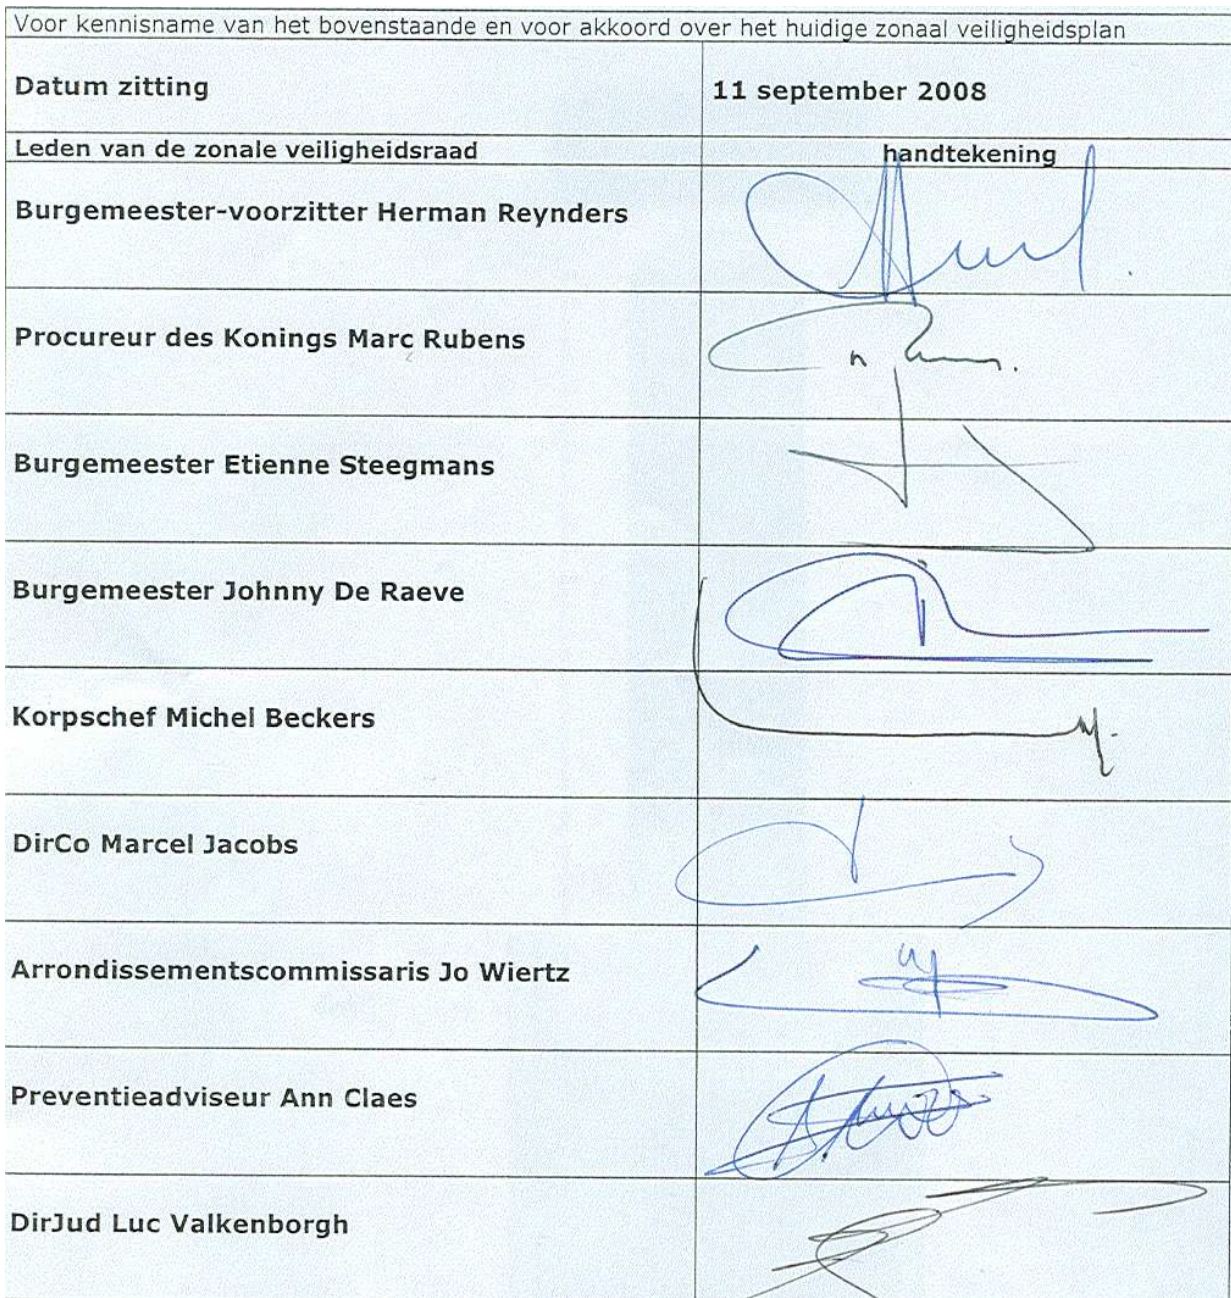 Voor kennisname van het bovenstaande en voor akkoord over het huidige zonaal veiligheidsplan
Datum zitting 11 september 2008
Leden van de zonale veiligheidsraad handtekening
Burgemeester-voorzitter Herman Reynders
Procureur des Konings Marc Rubens
Burgemeester Etienne Steegmans
Burgemeester Johnny De Raeve
Korpschef Michel Beckers
DirCo Marcel Jacobs
Arrondissementscommissaris Jo Wiertz
Preventieadviseur Ann Claes
DirJud Luc Valkenborgh